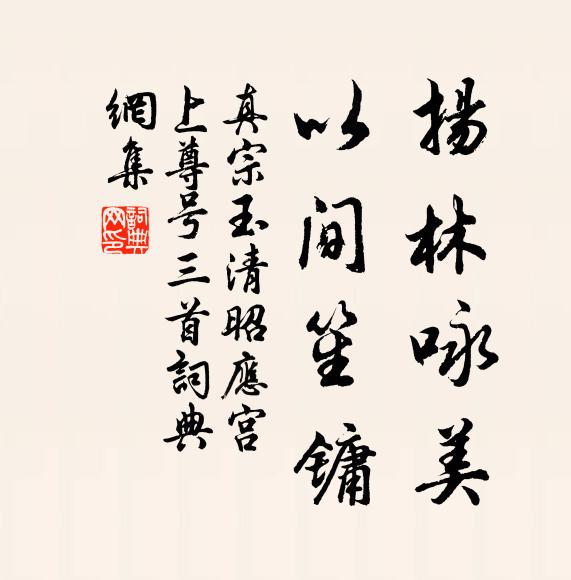 揚林咏美
以間笙鏞
真宗玉清昭應宫
上尊号三首詞典
網集
詞典網印